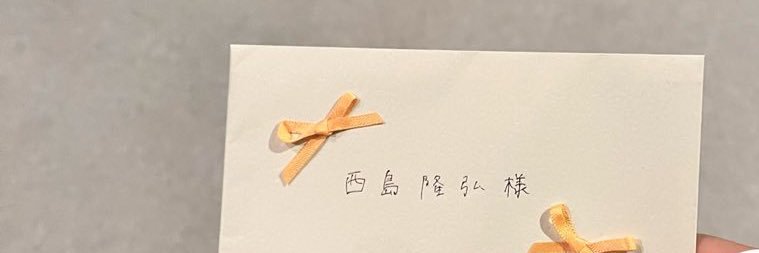 西島隆弘様